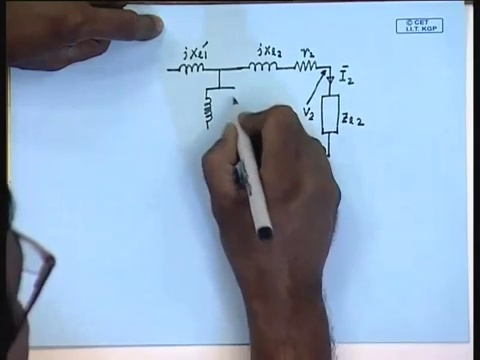 © CET
I.I.T. KGP
jxl1'
jxl2
r2
Ī2
V2
Zl2